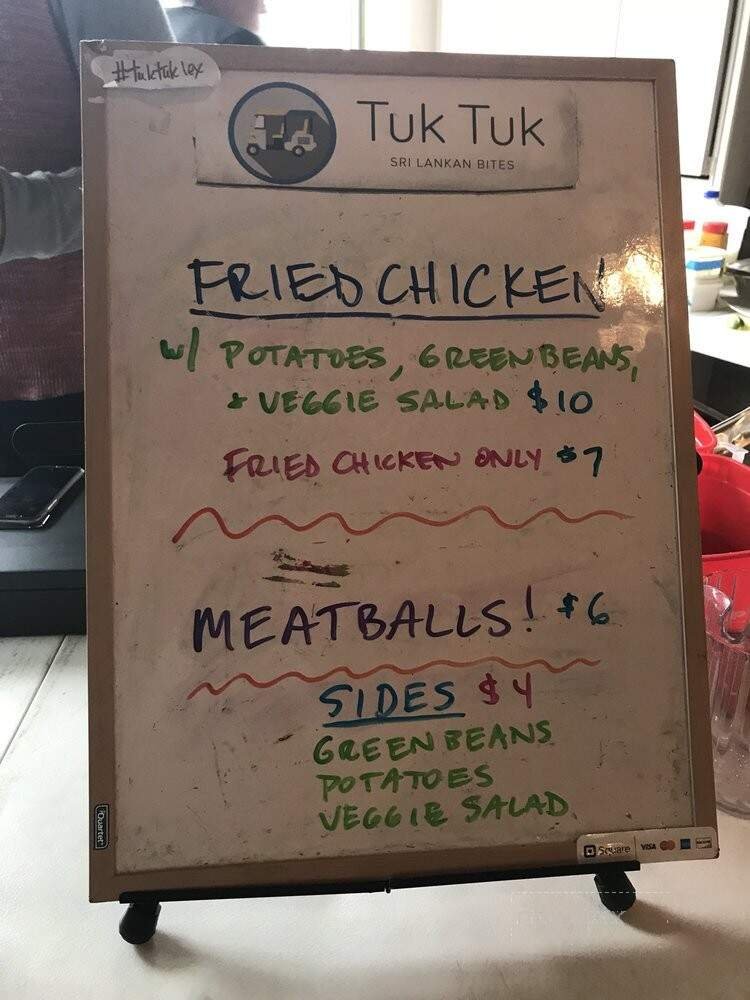 #tuktuklex
Tuk Tuk
SRI LANKAN BITES
FRIED CHICKEN
w/ POTATOES, GREEN BEANS,
+ VEGGIE SALAD $10
FRIED CHICKEN ONLY $7
MEATBALLS! $6
SIDES $4
GREEN BEANS
POTATOES
VEGGIE SALAD
Quartet
Square VISA